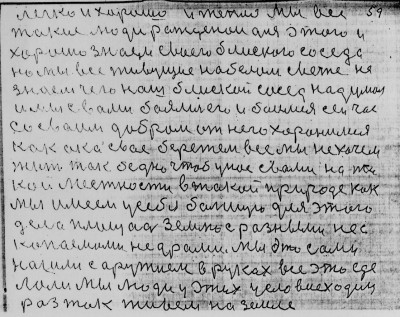 легко и хорошо и тепло мы все 59
такие люди рожденои для этого и
хорошо знаем своего близкого соседа
но мы все живущие на белом свете не
знаем чего наш близкой сосед надумал
и мы с вами боялись его и боимся сейчас
со своим добром от него хоронимся
как ока свое берегем все мы не хочем
жить так бедно чтоб у нас с вами на та
кой местности в такой природе как
мы имеем у себя большую для этого
дела площадь земле с разными ис
копаемыми недрами мы это сами
нашли с аружием в руках все это зде
лали мы люди у этих чело восходим
раз так живем на земле